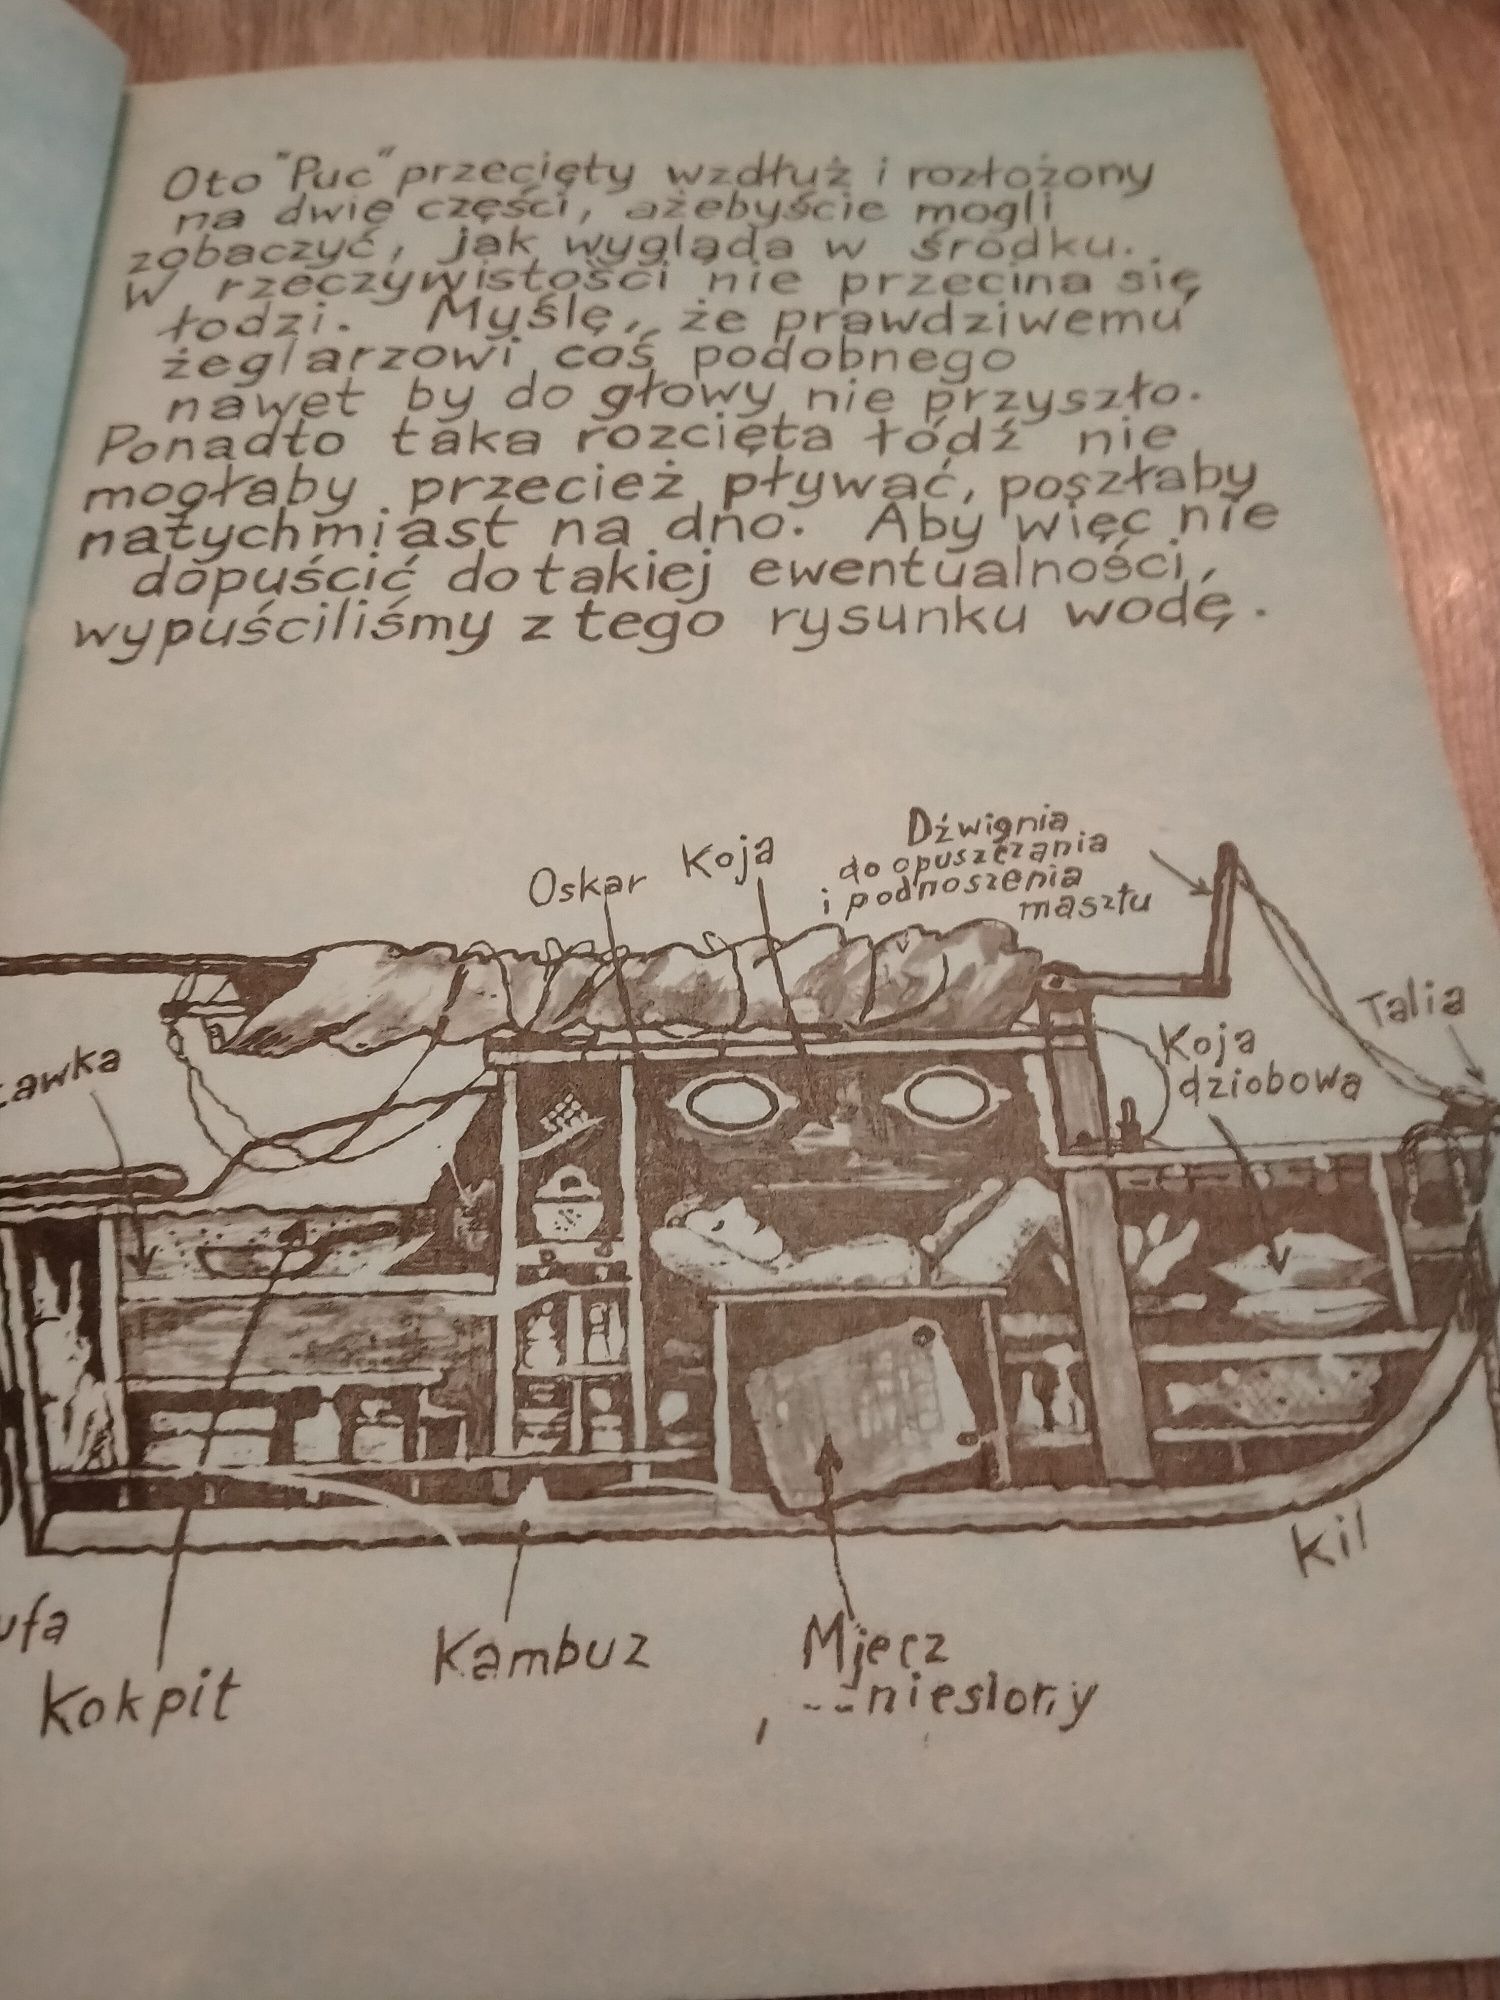 Oto "Puc" przecięty wzdłuż i rozłożony
na dwie części, ażebyście mogli
zobaczyć, jak wygląda w środku.
W rzeczywistości nie przecina się
łodzi. Myślę, że prawdziwemu
żeglarzowi coś podobnego
nawet by do głowy nie przyszło.
Ponadto taka rozcięta łódź nie
mogłaby przecież pływać, poszłaby
natychmiast na dno. Aby więc nie
dopuścić do takiej ewentualności,
wypuściliśmy z tego rysunku wodę.
Dźwignia
do opuszczania
i podnoszenia
masztu
Oskar
Koja
Talia
Koja
dziobowa
Ławka
Kil
ufa
Kokpit
Kambuz
Mjecz